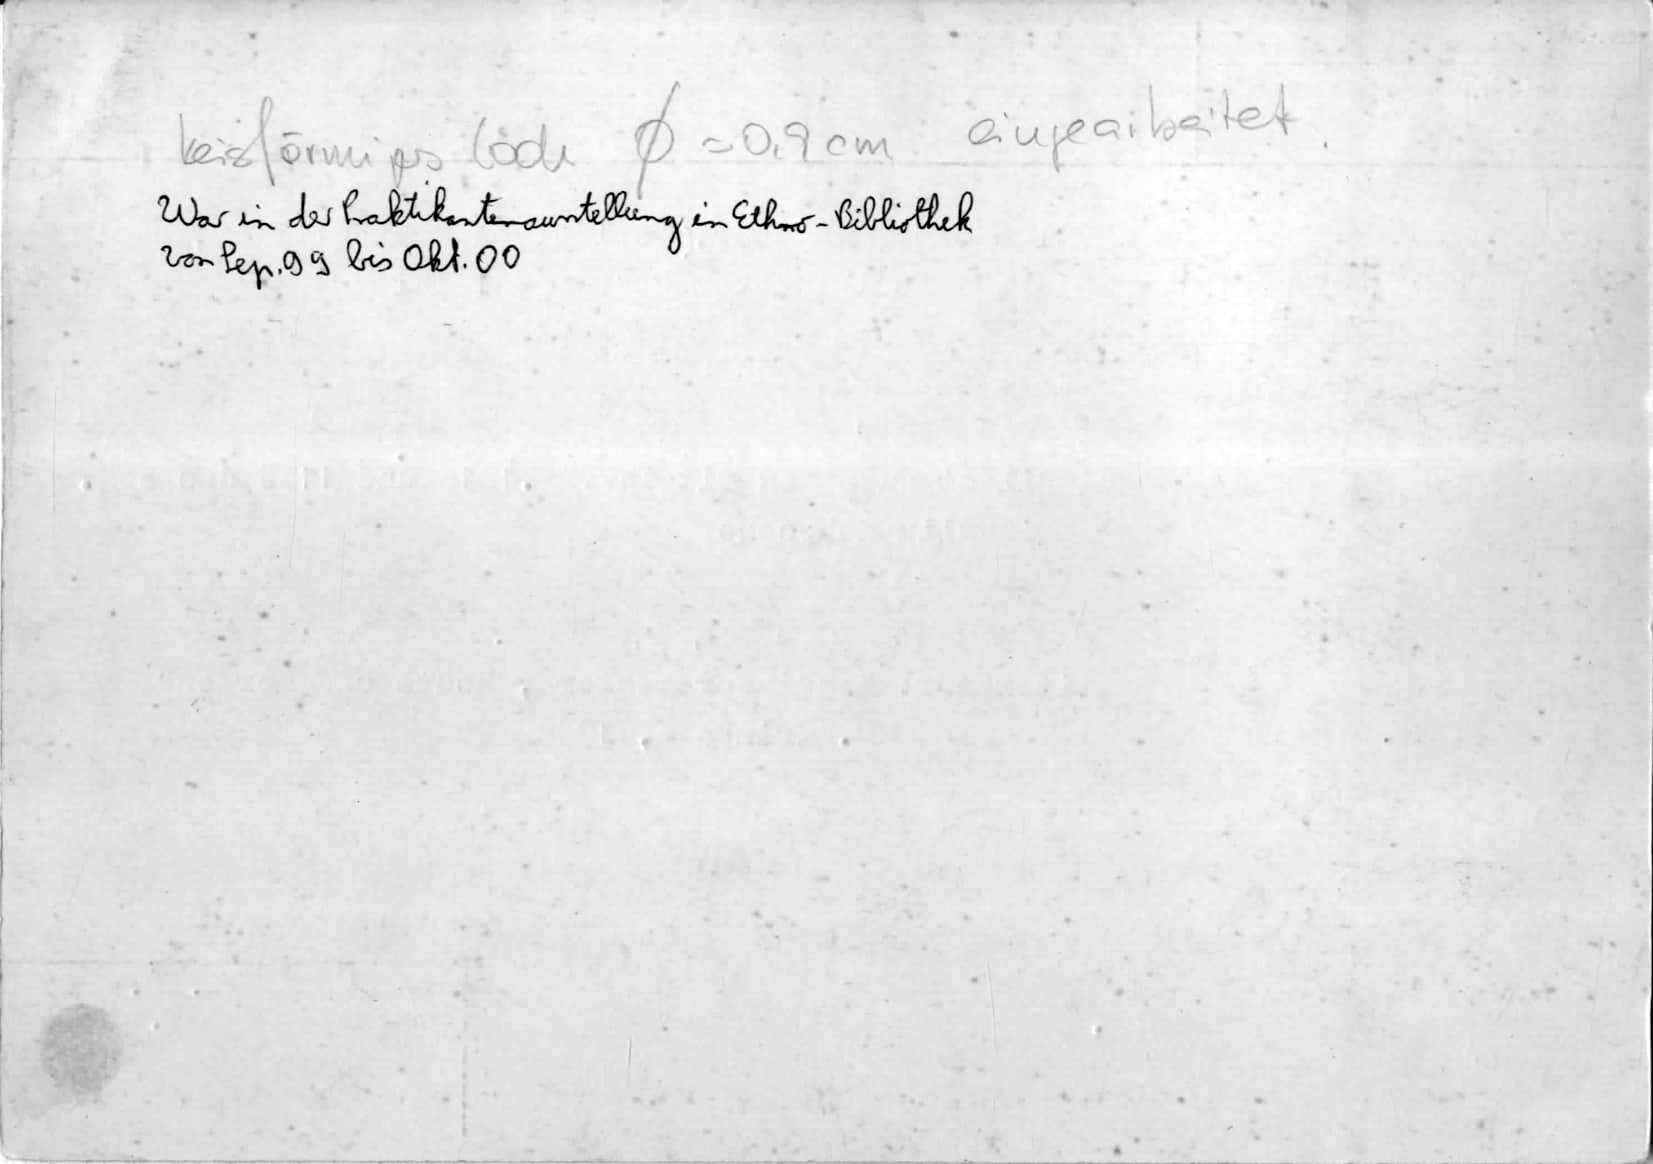 kreisförmiges Loch ϕ = 0,9 cm eingearbeitet.
War in der Praktikantenausstellung in Ethno-Bibliothek
von Sep. 99 bis Okt. 00